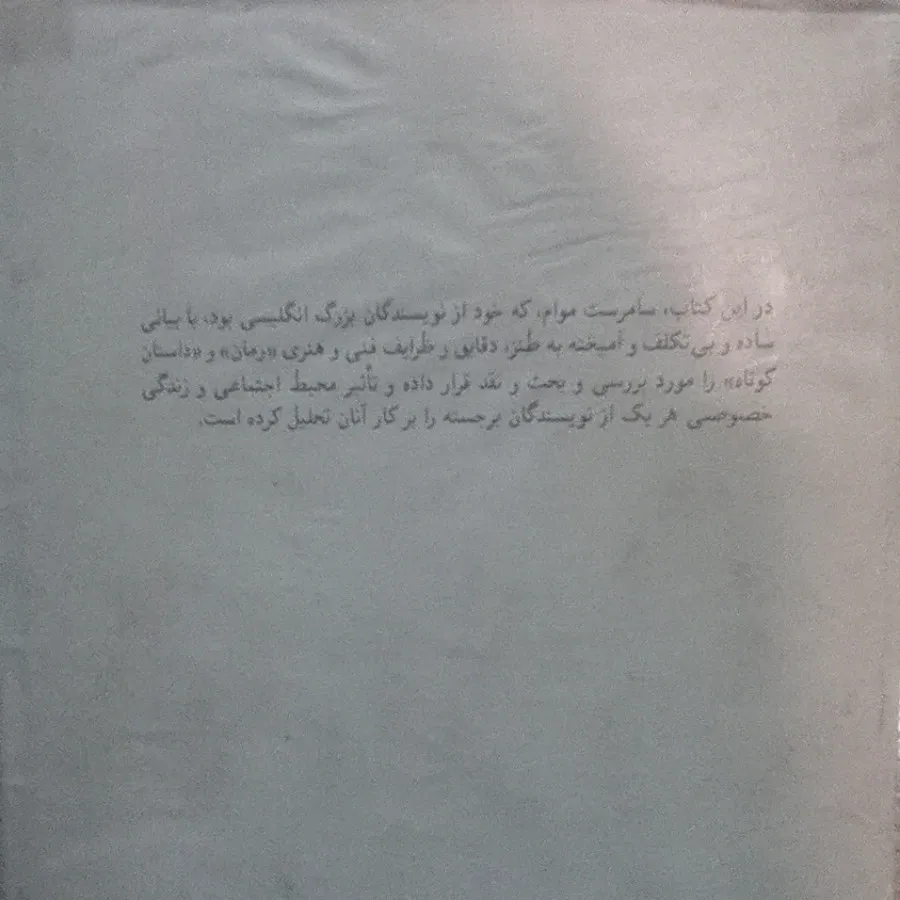 در این کتاب، سامرست موام، که خود از نویسندگان بزرگ انگلیسی بود، با بیانی
ساده و بی‌تکلف و آمیخته به طنز، دقایق و ظرایف فنی و هنری «رمان» و «داستان
کوتاه» را مورد بررسی و بحث و نقد قرار داده و تأثیر محیط اجتماعی و زندگی
خصوصی هر یک از نویسندگان برجسته را بر کار آنان تحلیل کرده است.